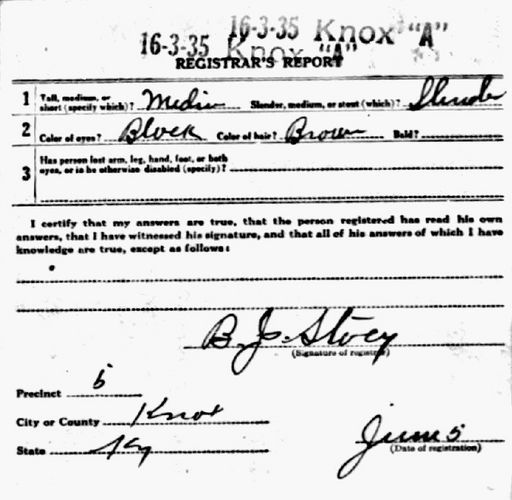 16-3-35 Knox "A"
16-3-35 Knox "A"
REGISTRAR'S REPORT
1 Tall, medium, or short (specify which)? Medium Slender, medium, or stout (which)? Slender
2 Color of eyes? Black Color of hair? Brown Bald?
3 Has person lost arm, leg, hand, foot, or both
eyes, or is he otherwise disabled (specify)?
I certify that my answers are true, that the person registered has read his own
answers, that I have witnessed his signature, and that all of his answers of which I have
knowledge are true, except as follows:
B. J. Story
(Signature of registrar)
Precinct 5
City or County Knox
State Ky
June 5
(Date of registration)